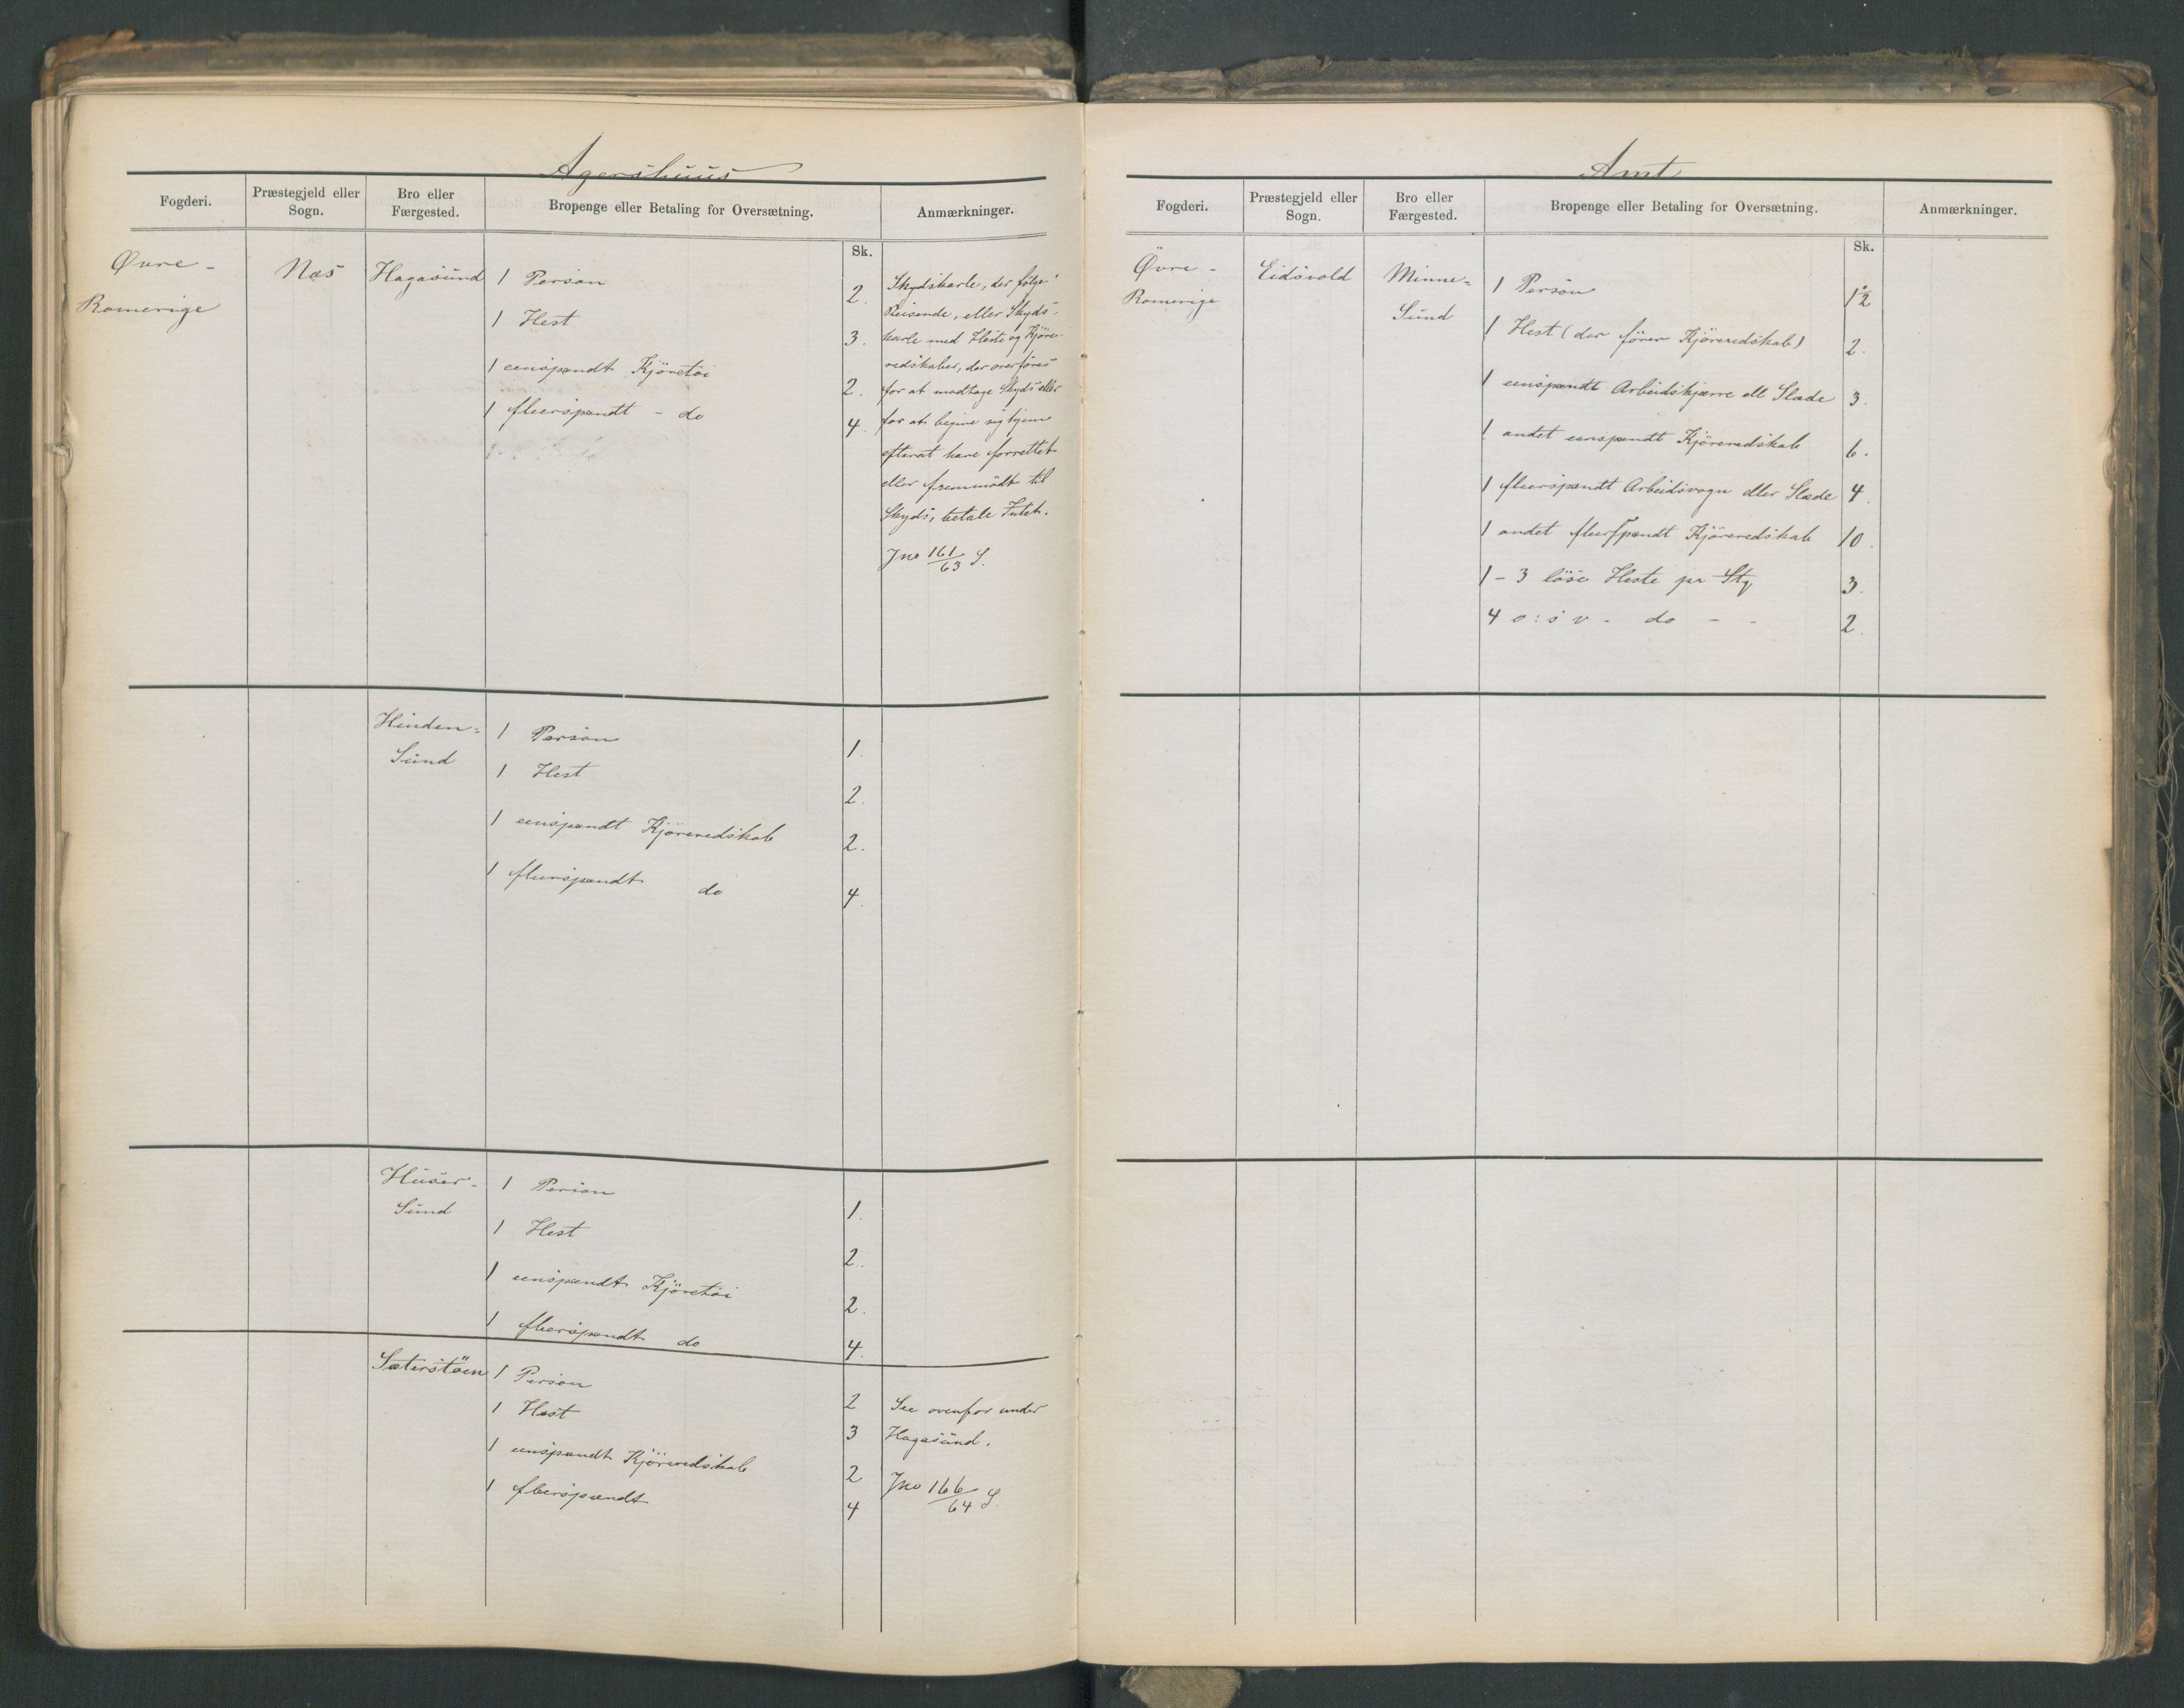 Agershuus
Fogderi. Præstegjeld eller Sogn. Bro eller Færgested. Bropenge eller Betaling for Oversætning. Anmærkninger.
Sk.
Øvre - Romerige
Næs
Hagasund
1 Person 2.
1 Hest 3.
1 eenspændt Kjöretöi 2.
1 fleerspændt - do 4.
Skydskarle, der følge
Reisende, eller Skyds-
karle med Heste og Kjöre-
redskaber, der overføres
for at modtage Skyds eller
for at begive sig hjem
efterat have forrettet
eller fremmödt til
Skyds, betale Intet.
Jno 161/63 S.
Hinden-
Sund
1 Person 1.
1 Hest 2.
1 eenspændt Kjöreredskab 2.
1 fleerspændt do 4.
Huser-
Sund
1 Person 1.
1 Hest 2.
1 eenspændt Kjöretöi 2.
1 fleerspændt do 4.
Sæterstöen
1 Person 2
1 Hest 3
1 eenspændt Kjöreredskab 2
1 fleerspændt 4
See ovenfor under
Hagasund.
Jno 166/64 S.
Amt
Fogderi. Præstegjeld eller Sogn. Bro eller Færgested. Bropenge eller Betaling for Oversætning. Anmærkninger.
Sk.
Övre - Romerige
Eidsvold
Minne-
Sund
1 Person 1½
1 Hest (der förer Kjöreredskab) 2.
1 eenspændt Arbeidskjærre ell Slæde 3.
1 andet eenspændt Kjöreredskab 6.
1 fleerspændt Arbeidsvogn eller Slæde 4.
1 andet fleerspændt Kjöreredskab 10.
1 - 3 löse Heste pr Stg 3.
4 o: s v - do - - 2.